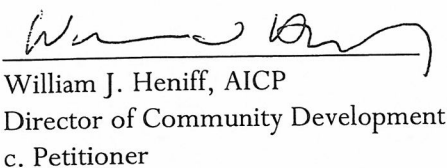 William J. Heniff, AICP
Director of Community Development
c. Petitioner